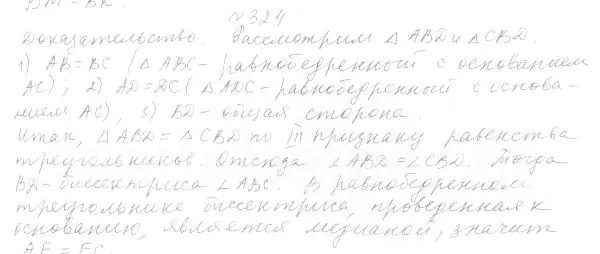 ВМ = ВК.
№324
Доказательство. Рассмотрим △ ABD и △ CBD.
1) AB = BC (△ ABC - равнобедренный с основанием
AC); 2) AD = DC (△ ADC - равнобедренный с основа-
нием AC); 3) BD - общая сторона.
Итак, △ ABD = △ CBD по III признаку равенства
треугольников. Отсюда ∠ABD = ∠CBD. Тогда
BD - биссектриса ∠ABC. В равнобедренном
треугольнике биссектриса, проведенная к
основанию, является медианой, значит
AE = EC.